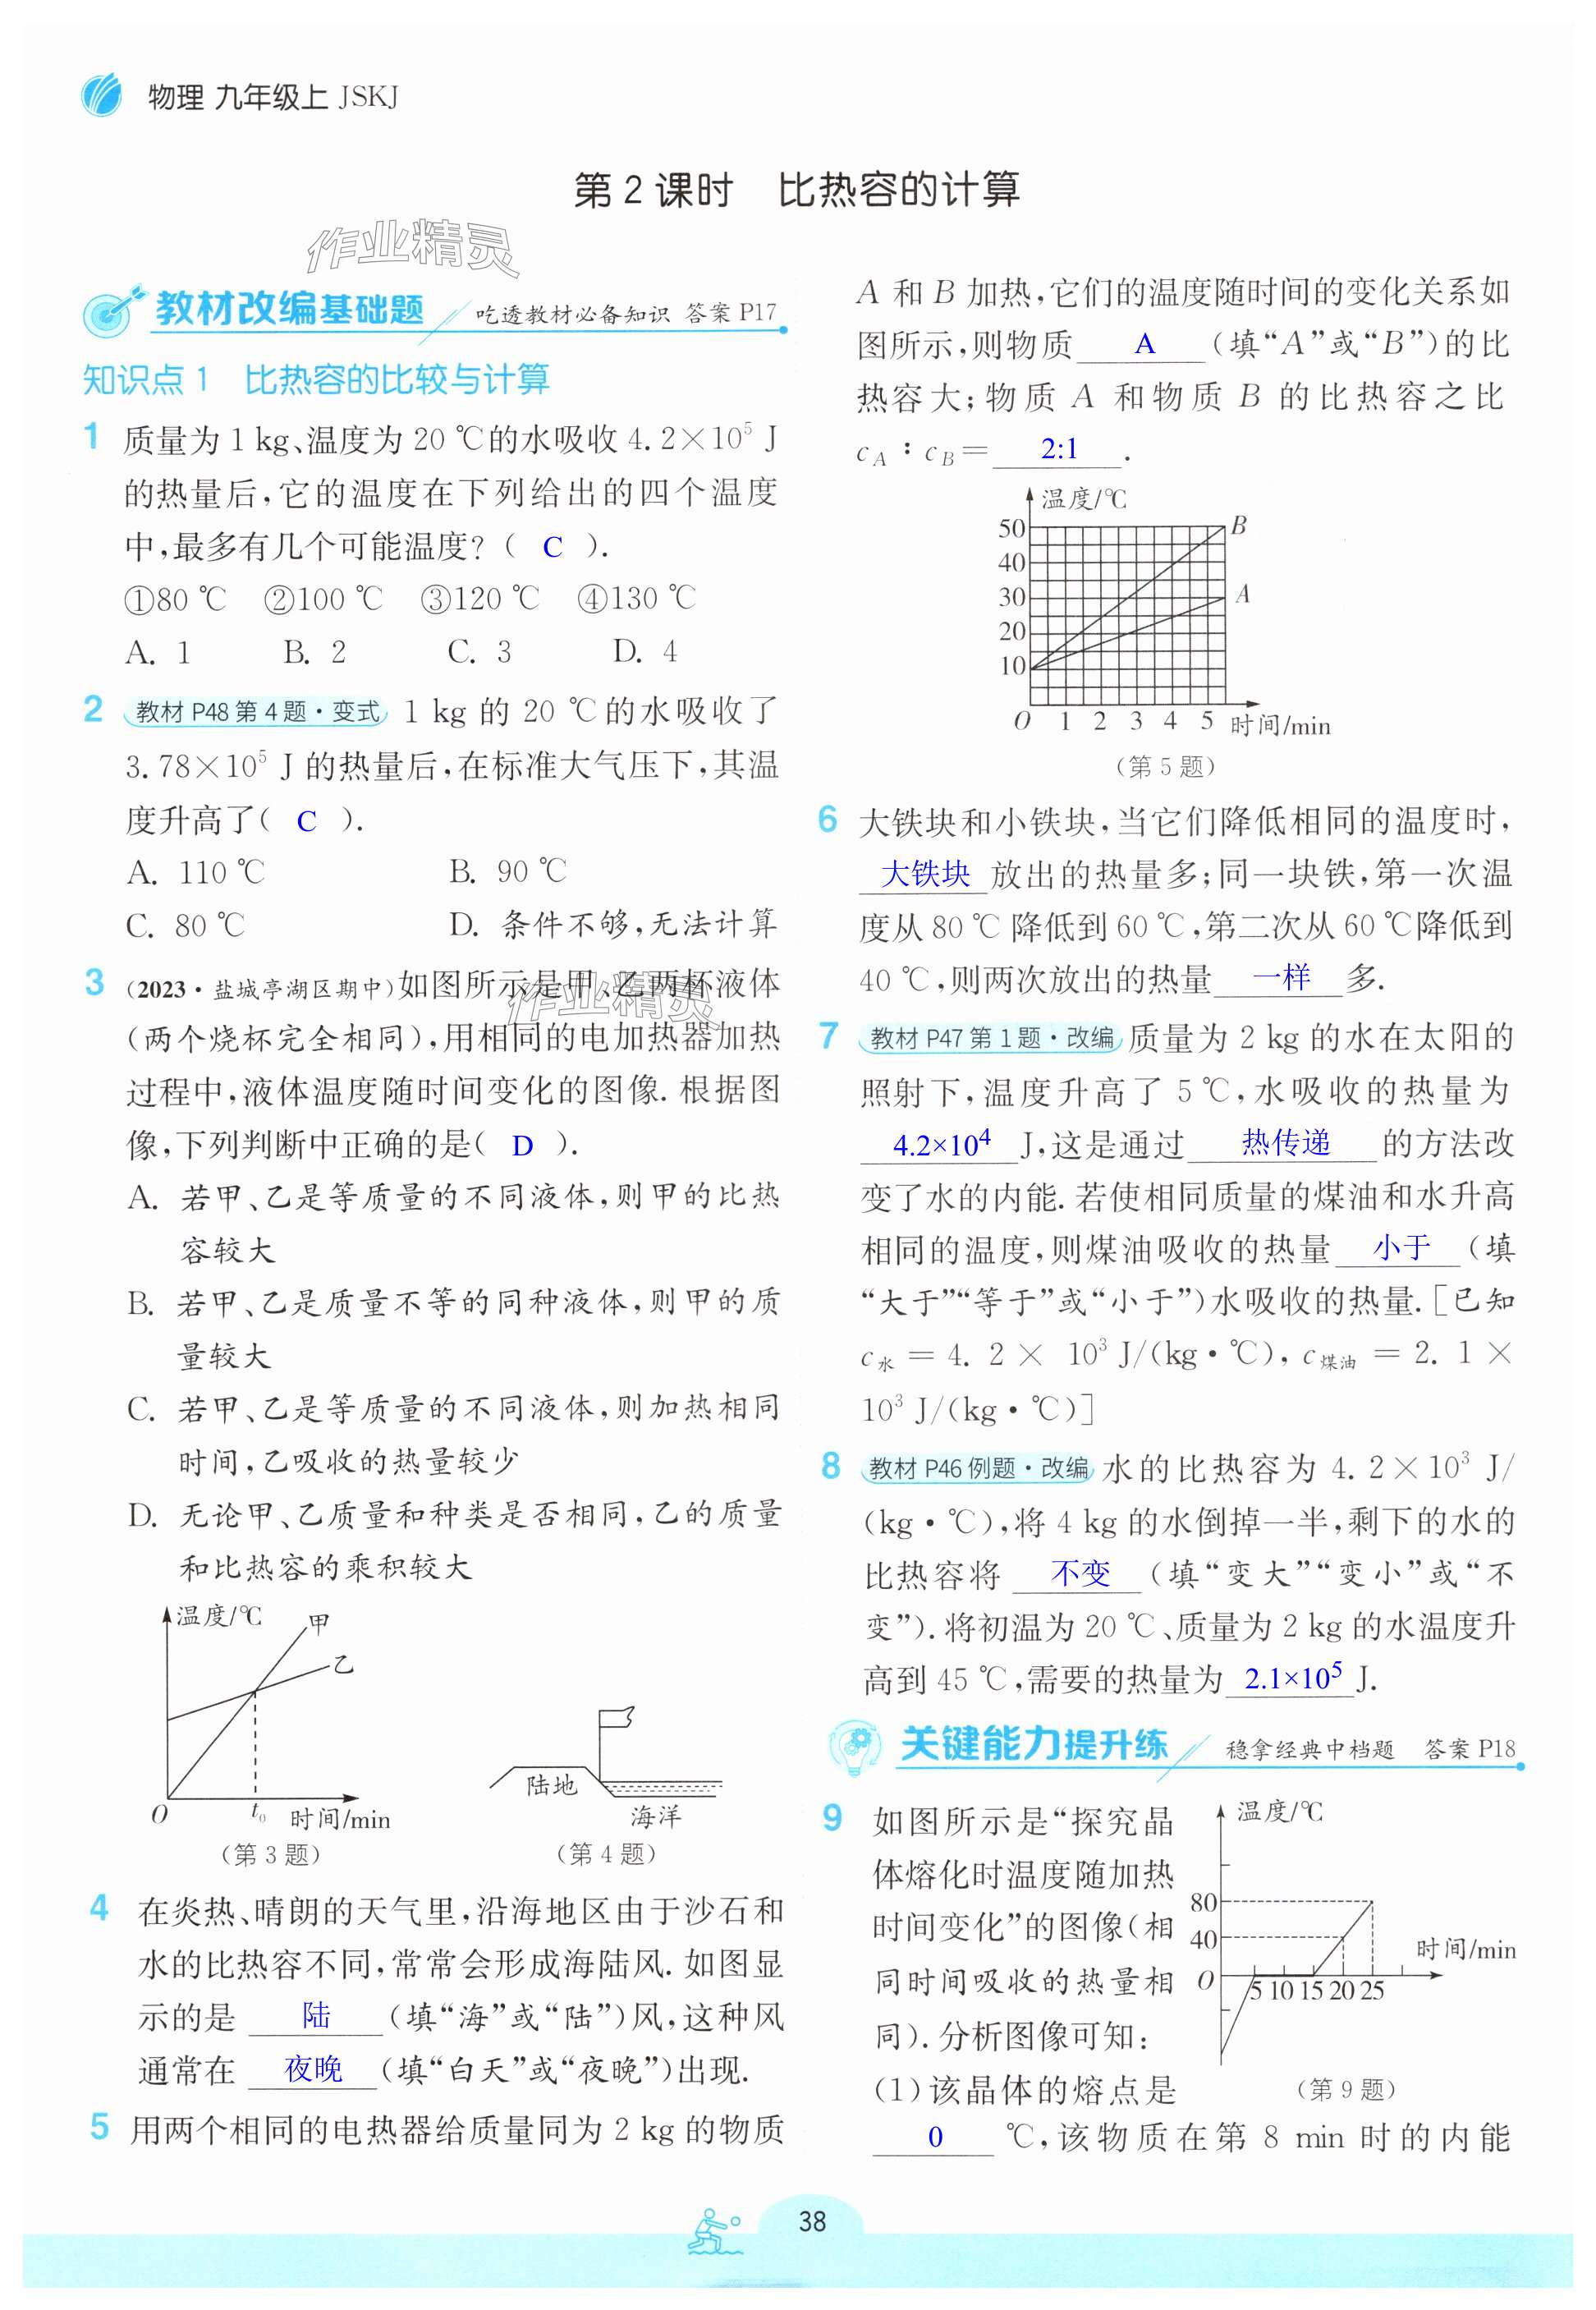 物理 九年级上 JSKJ
第 2 课时 比热容的计算
作业精灵
教材改编基础题 吃透教材必备知识 答案 P17
知识点 1 比热容的比较与计算
1 质量为 1 kg、温度为 20 ℃的水吸收 4.2×10⁵ J
的热量后,它的温度在下列给出的四个温度
中,最多有几个可能温度?( C ).
①80 ℃ ②100 ℃ ③120 ℃ ④130 ℃
A. 1 B. 2 C. 3 D. 4
2 教材 P48 第 4 题·变式 1 kg 的 20 ℃的水吸收了
3.78×10⁵ J 的热量后,在标准大气压下,其温
度升高了( C ).
A. 110 ℃ B. 90 ℃
C. 80 ℃ D. 条件不够,无法计算
3 (2023·盐城亭湖区期中)如图所示是甲、乙两杯液体
作业精灵
(两个烧杯完全相同),用相同的电加热器加热
过程中,液体温度随时间变化的图像. 根据图
像,下列判断中正确的是( D ).
A. 若甲、乙是等质量的不同液体,则甲的比热
容较大
B. 若甲、乙是质量不等的同种液体,则甲的质
量较大
C. 若甲、乙是等质量的不同液体,则加热相同
时间,乙吸收的热量较少
D. 无论甲、乙质量和种类是否相同,乙的质量
和比热容的乘积较大
温度/℃
甲
乙
O t₀ 时间/min
(第 3 题)
陆地
海洋
(第 4 题)
4 在炎热、晴朗的天气里,沿海地区由于沙石和
水的比热容不同,常常会形成海陆风. 如图显
示的是 陆 (填“海”或“陆”)风,这种风
通常在 夜晚 (填“白天”或“夜晚”)出现.
5 用两个相同的电热器给质量同为 2 kg 的物质
A 和 B 加热,它们的温度随时间的变化关系如
图所示,则物质 A (填“A”或“B”)的比
热容大;物质 A 和物质 B 的比热容之比
c_A∶c_B= 2:1 .
温度/℃
50 B
40
30 A
20
10
O 1 2 3 4 5 时间/min
(第 5 题)
6 大铁块和小铁块,当它们降低相同的温度时,
大铁块 放出的热量多;同一块铁,第一次温
度从 80 ℃ 降低到 60 ℃,第二次从 60 ℃降低到
40 ℃,则两次放出的热量 一样 多.
7 教材 P47 第 1 题·改编 质量为 2 kg 的水在太阳的
照射下,温度升高了 5 ℃,水吸收的热量为
4.2×10⁴ J,这是通过 热传递 的方法改
变了水的内能. 若使相同质量的煤油和水升高
相同的温度,则煤油吸收的热量 小于 (填
“大于”“等于”或“小于”)水吸收的热量. [已知
c水 = 4. 2 × 10³ J/(kg·℃), c煤油 = 2. 1 ×
10³ J/(kg·℃)]
8 教材 P46 例题·改编 水的比热容为 4. 2×10³ J/
(kg·℃),将 4 kg 的水倒掉一半,剩下的水的
比热容将 不变 (填“变大”“变小”或“不
变”). 将初温为 20 ℃、质量为 2 kg 的水温度升
高到 45 ℃,需要的热量为 2.1×10⁵ J.
关键能力提升练 稳拿经典中档题 答案 P18
9 如图所示是“探究晶
体熔化时温度随加热
时间变化”的图像(相
同时间吸收的热量相
同). 分析图像可知:
(1)该晶体的熔点是
0 ℃,该物质在第 8 min 时的内能
温度/℃
80
40
时间/min
O 5 10 15 20 25
(第 9 题)
38